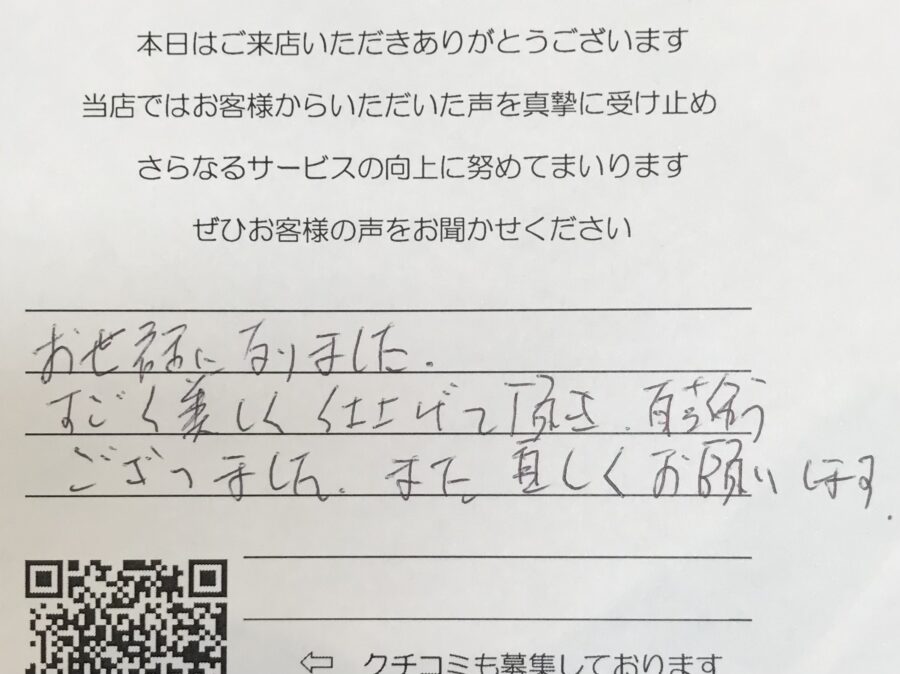 本日はご来店いただきありがとうございます
当店ではお客様からいただいた声を真摯に受け止め
さらなるサービスの向上に努めてまいります
ぜひお客様の声をお聞かせください
お世話になりました.
すごく美しく仕上げて頂き
ございました. また
しくお願いします.
⇦ クチコミも募集しております